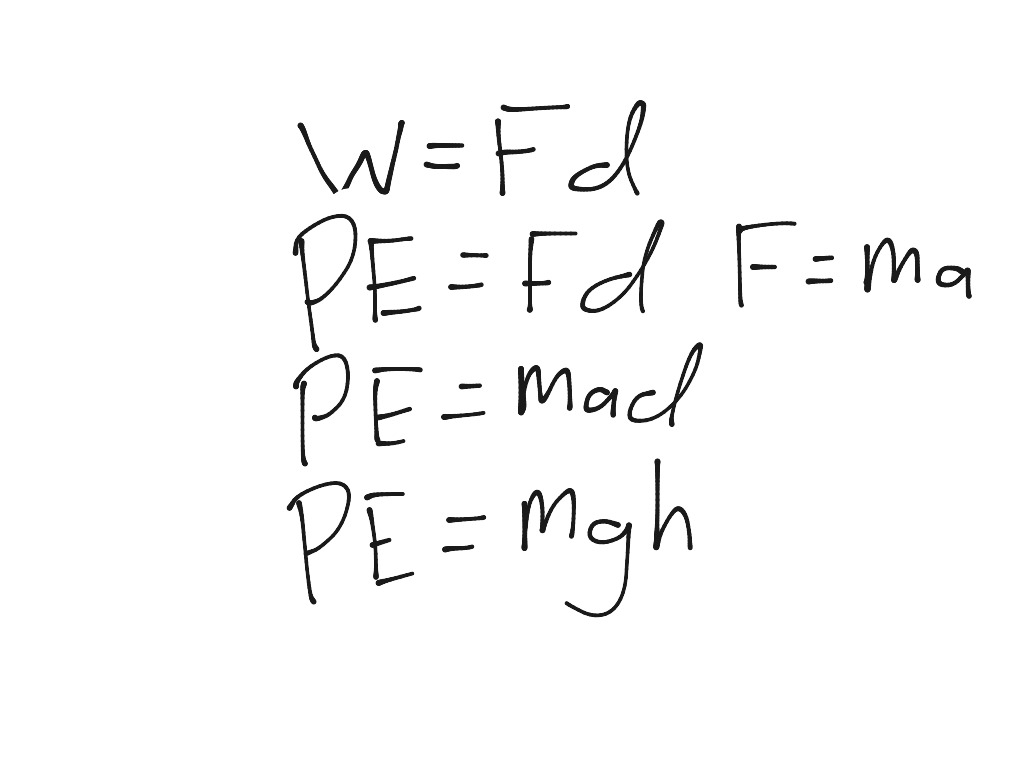 W = Fd
PE = Fd F = ma
PE = mad
PE = mgh